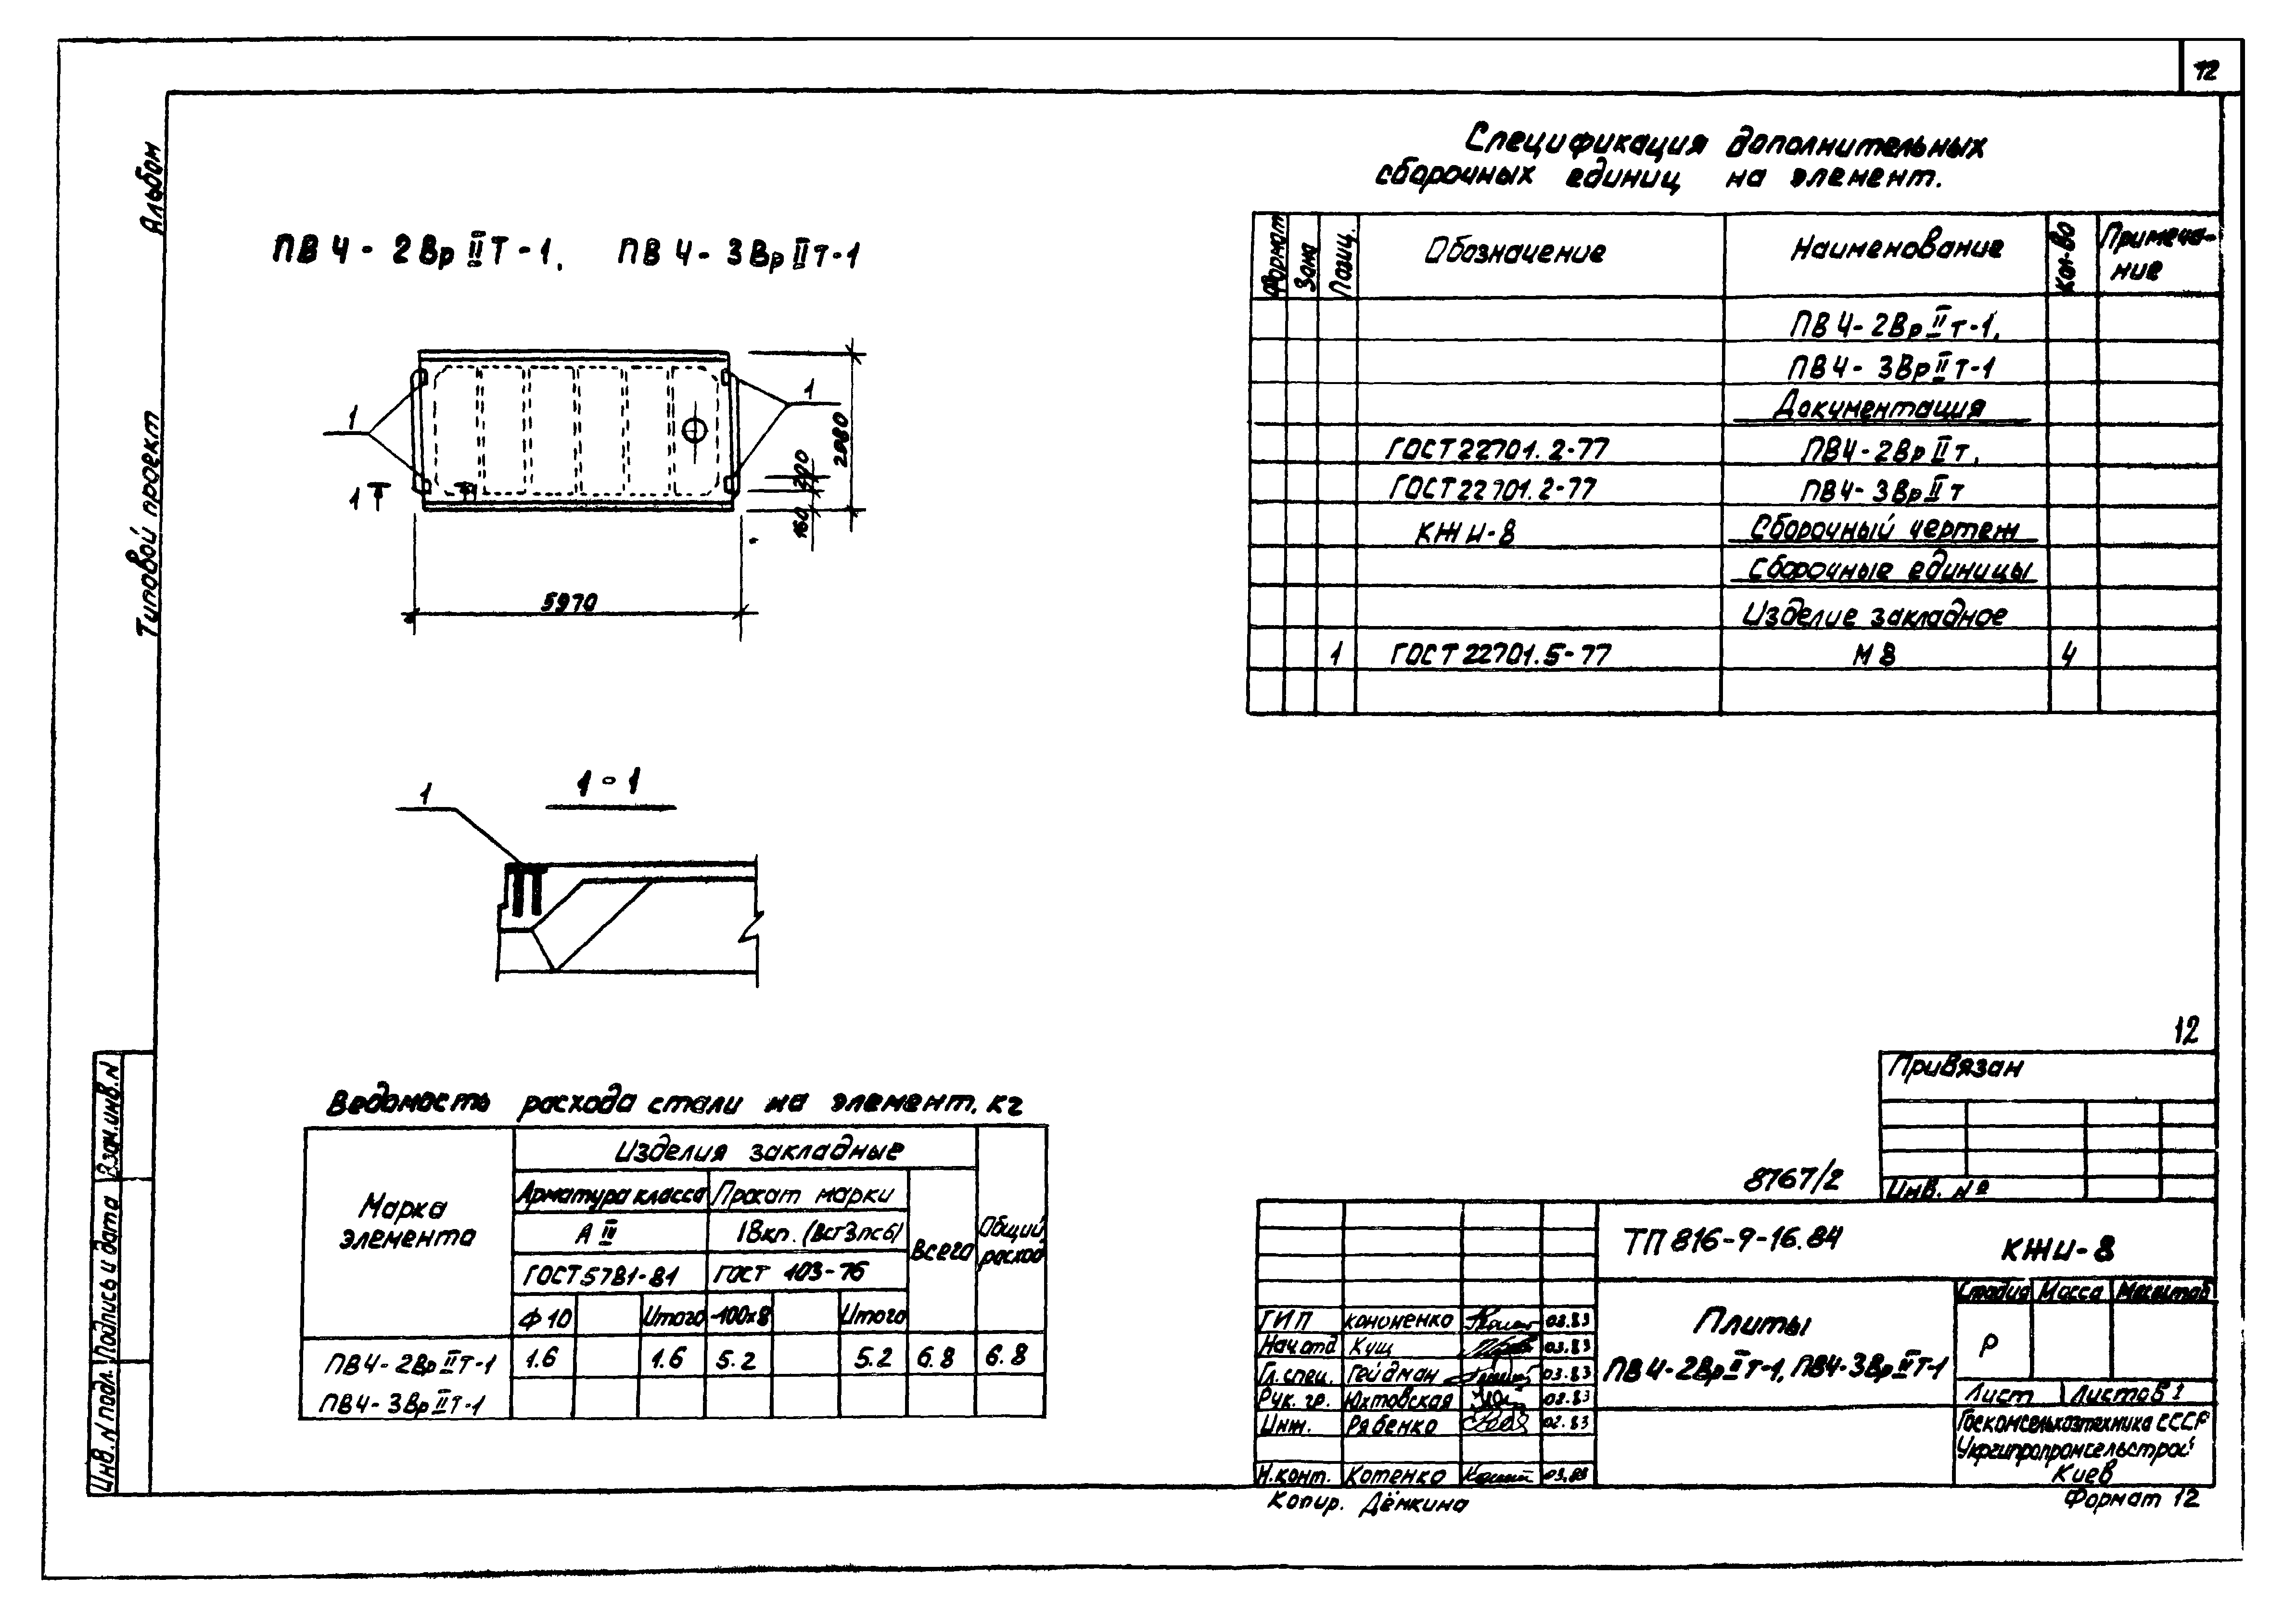 12
Альбом
Типовой проект
ПВ4-2ВрIIТ-1, ПВ4-3ВрIIТ-1
1
1
1
2980
200
160
5970
1-1
1
Спецификация дополнительных
сборочных единиц на элемент.
Формат Зона Позиц. Обозначение Наименование Кол-во Примеча-
ние
ПВ4-2ВрIIт-1,
ПВ4-3ВрIIт-1
Документация
ГОСТ 22701.2-77 ПВ4-2ВрIIт,
ГОСТ 22701.2-77 ПВ4-3ВрIIт
КЖИ-8 Сборочный чертеж
Сборочные единицы
Изделие закладное
1 ГОСТ 22701.5-77 М8 4
Ведомость расхода стали на элемент, кг
Марка
элемента
Изделия закладные
Общий
расход
Арматура класса Прокат марки
Всего
А III 18кп. (ВСт3пс6)
ГОСТ 5781-81 ГОСТ 103-76
Ф10 Итого -100х8 Итого
ПВ4-2ВрIIТ-1 1.6 1.6 5.2 5.2 6.8 6.8
ПВ4-3ВрIIТ-1
12
Привязан
Инв. №
8767/2
ТП 816-9-16.84 КЖИ-8
Плиты
ПВ4-2ВрIIТ-1, ПВ4-3ВрIIТ-1
Стадия Масса Масштаб
Р
Лист Листов 1
Госкомсельхозтехника СССР
Укргипропромсельстрой
Киев
ГИП Кононенко 03.83
Нач.отд Кущ 03.83
Гл.спец. Гейдман 03.83
Рук. гр. Юхтовская 02.83
Инж. Рябенко 02.83
Н.конт. Котенко 03.83
Копир. Дёнкина
Формат 12
Взам.инв.N
Подпись и дата
Инв. N подл.